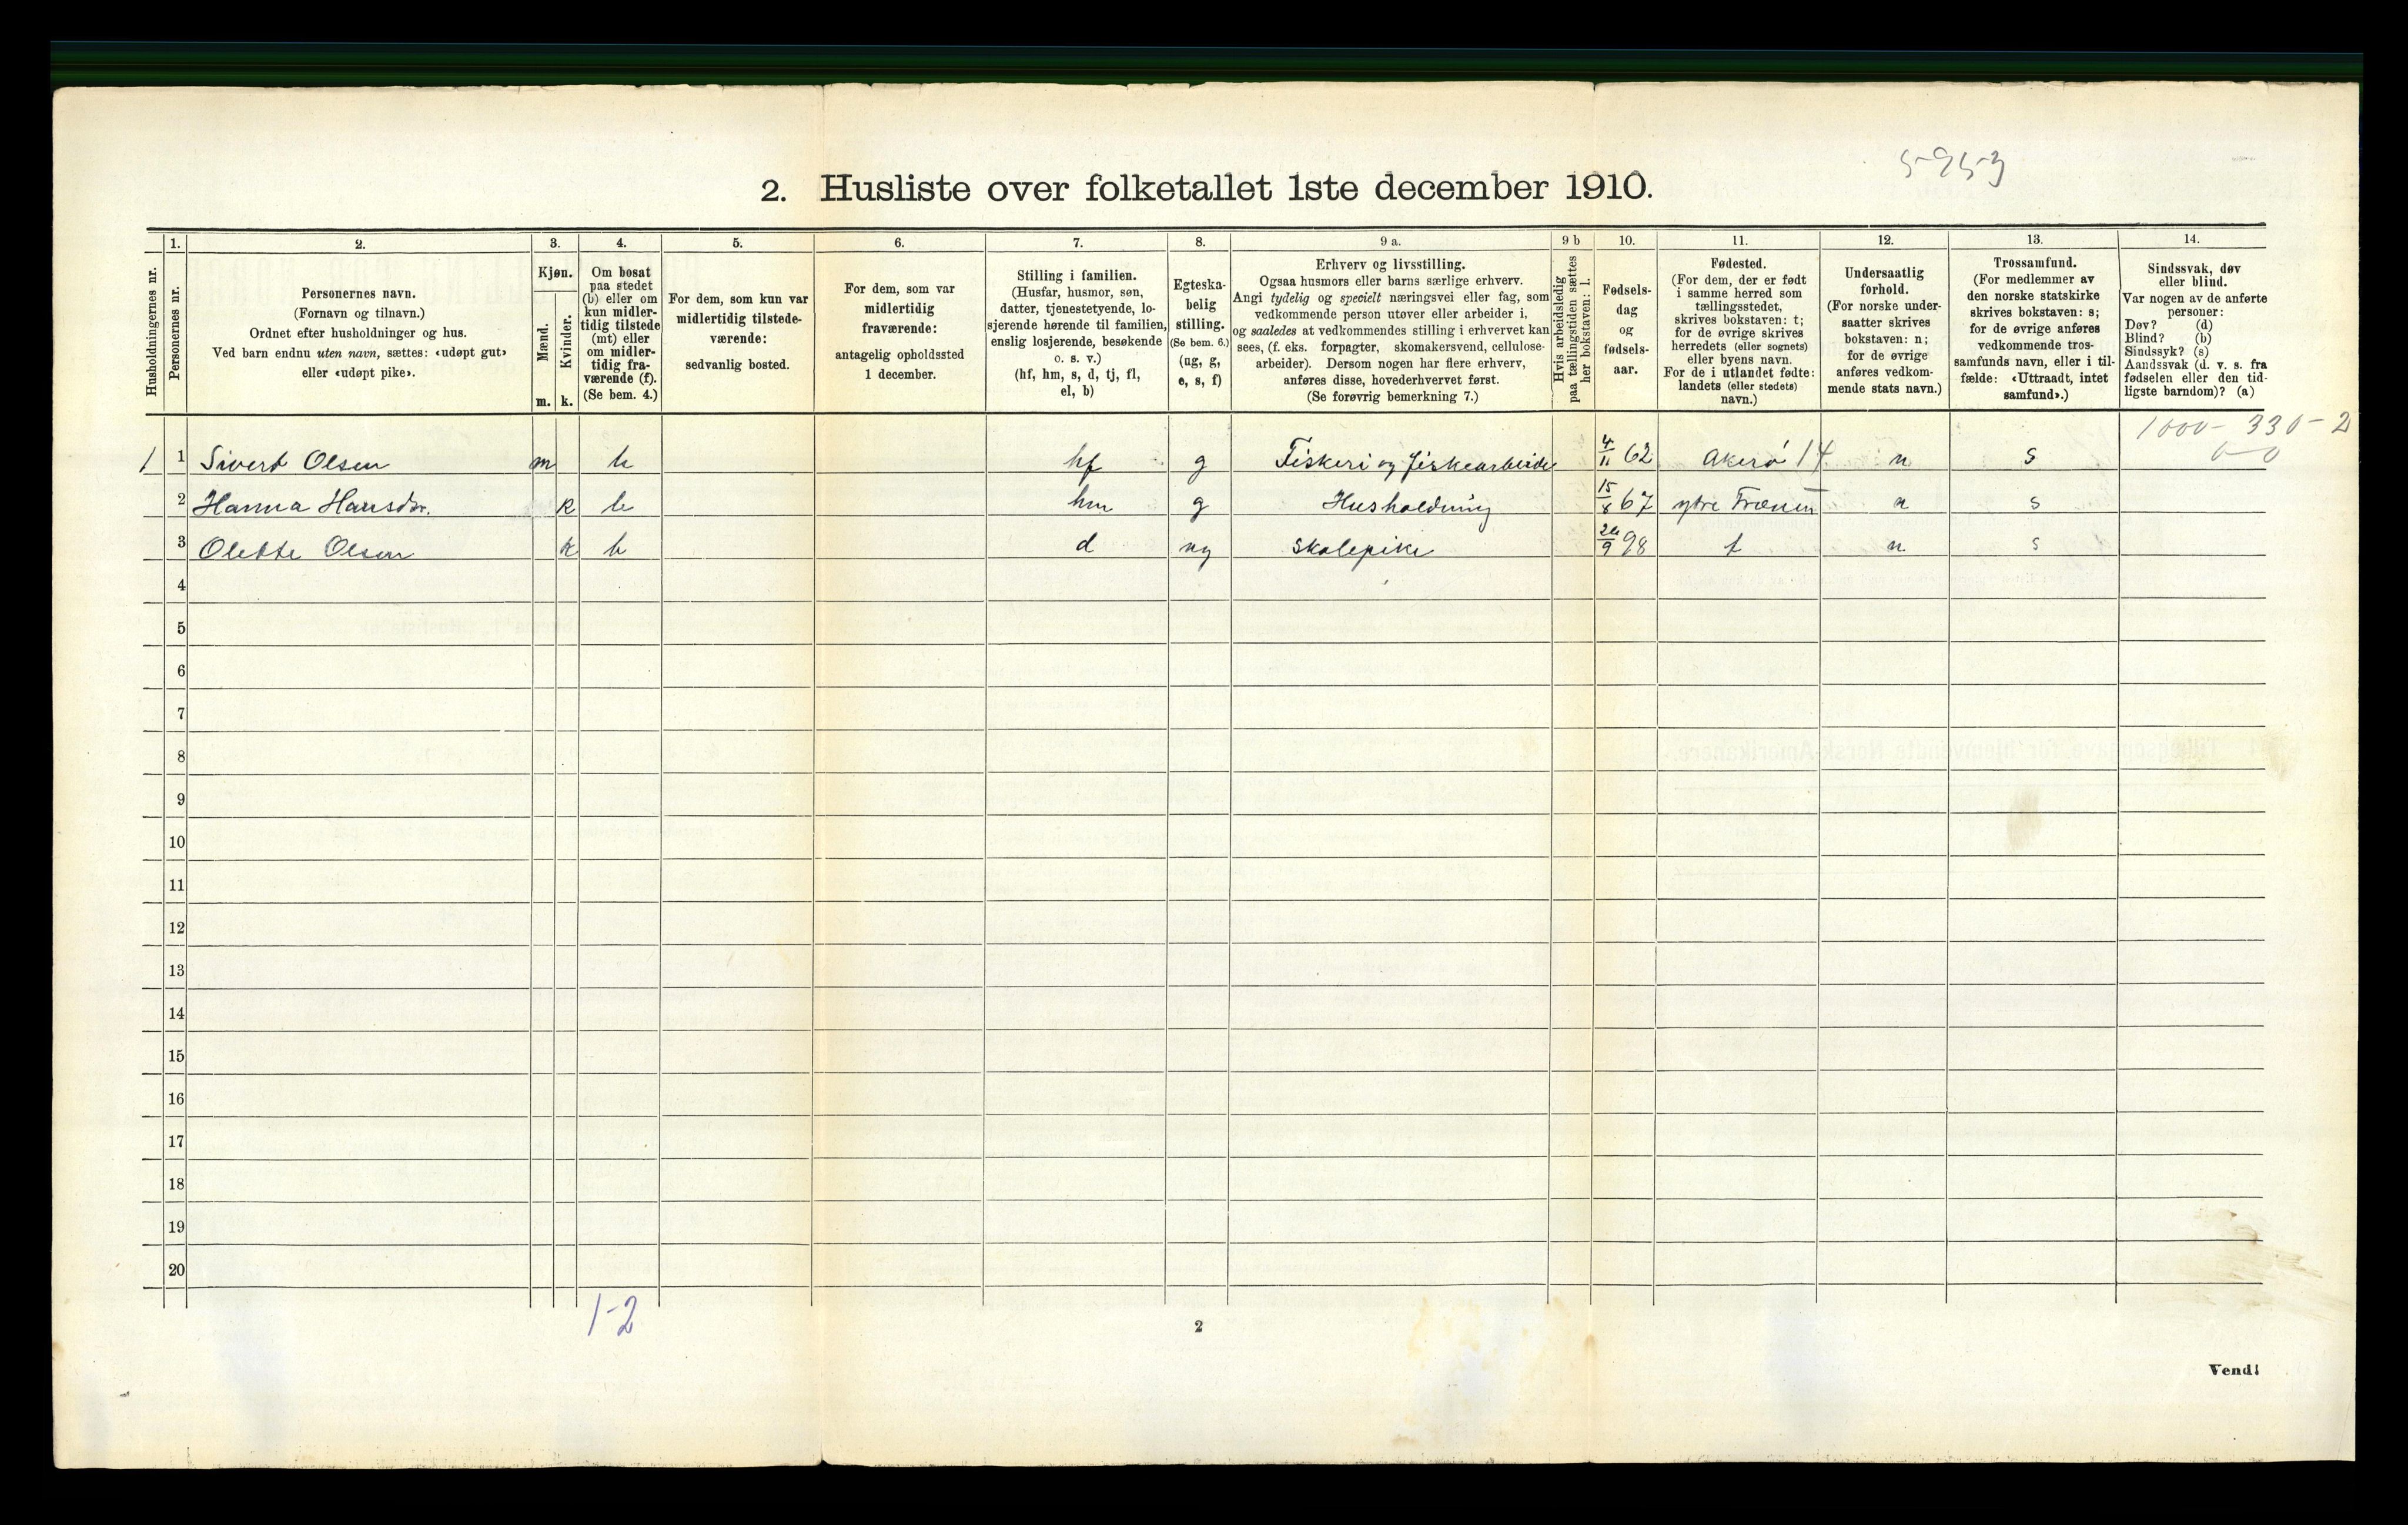 5-953
2. Husliste over folketallet 1ste december 1910.
Husholdningernes nr.
1.
Personernes nr.
2.
Personernes navn.
(Fornavn og tilnavn.)
Ordnet efter husholdninger og hus.
Ved barn endnu uten navn, sættes: «udøpt gut»
eller «udøpt pike».
3.
Kjøn.
Mænd.
m.
Kvinder.
k.
4.
Om bosat
paa stedet
(b) eller om
kun midler-
tidig tilstede
(mt) eller
om midler-
tidig fra-
værende (f).
(Se bem. 4.)
5.
For dem, som kun var
midlertidig tilstede-
værende:
sedvanlig bosted.
6.
For dem, som var
midlertidig
fraværende:
antagelig opholdssted
1 december.
7.
Stilling i familien.
(Husfar, husmor, søn,
datter, tjenestetyende, lo-
sjerende hørende til familien,
enslig losjerende, besøkende
o. s. v.)
(hf, hm, s, d, tj, fl,
el, b)
8.
Egteska-
belig
stilling.
(Se bem. 6.)
(ug, g,
e, s, f)
9 a.
Erhverv og livsstilling.
Ogsaa husmors eller barns særlige erhverv.
Angi tydelig og specielt næringsvei eller fag, som
vedkommende person utøver eller arbeider i,
og saaledes at vedkommendes stilling i erhvervet kan
sees, (f. eks. forpagter, skomakersvend, cellulose-
arbeider). Dersom nogen har flere erhverv,
anføres disse, hovederhvervet først.
(Se forøvrig bemerkning 7.)
9 b
Hvis arbeidsledig
paa tællingstiden sættes
her bokstaven: l.
10.
Fødsels-
dag
og
fødsels-
aar.
11.
Fødested.
(For dem, der er født
i samme herred som
tællingsstedet,
skrives bokstaven: t;
for de øvrige skrives
herredets (eller sognets)
eller byens navn.
For de i utlandet fødte:
landets (eller stedets)
navn.)
12.
Undersaatlig
forhold.
(For norske under-
saatter skrives
bokstaven: n;
for de øvrige
anføres vedkom-
mende stats navn.)
13.
Trossamfund.
(For medlemmer av
den norske statskirke
skrives bokstaven: s;
for de øvrige anføres
vedkommende tros-
samfunds navn, eller i til-
fælde: «Uttraadt, intet
samfund».)
14.
Sindssvak, døv
eller blind.
Var nogen av de anførte
personer:
Døv? (d)
Blind? (b)
Sindssyk? (s)
Aandssvak (d. v. s. fra
fødselen eller den tid-
ligste barndom)? (a)
1000-330-2
0-0
1 1 Sivert Olsen m b hf g Fiskeri og fiskearbeide 4/11 62 Akerø 14 n s
2 Hanna Hansdtr. k b hm g Husholdning 15/8 67 ytre Frænen n s
3 Olette Olsen k b d ug Skolepike 9 98 t n s
4
5
6
7
8
9
10
11
12
13
14
15
16
17
18
19
20
1-2
2
Vend!